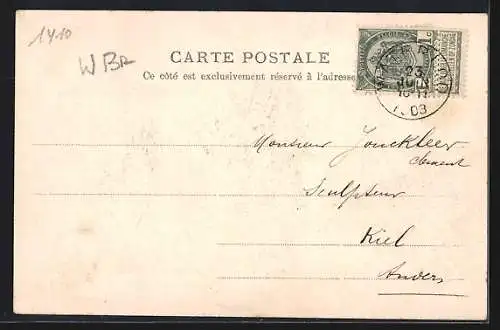 1410
WBr
CARTE POSTALE
Ce côté est exclusivement réservé à l'adresse
23
JUIN
1903
Monsieur Jonckleer
Clement
Sculpteur
Kiel
Anvers